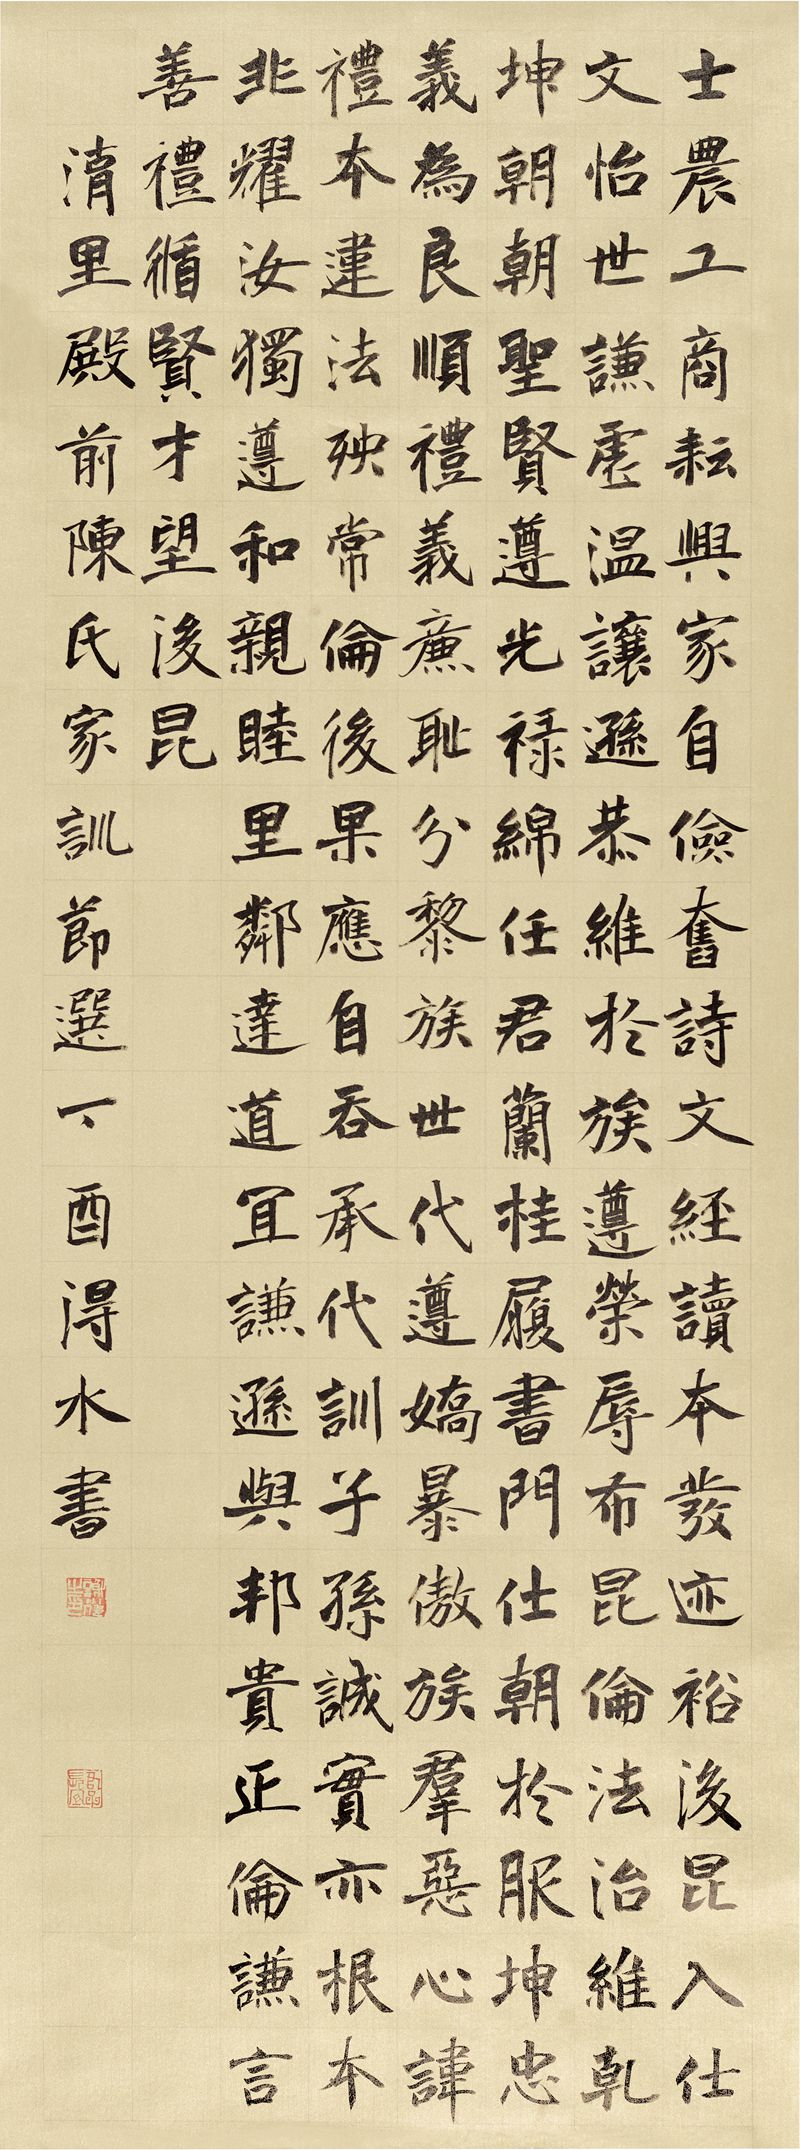 士農工商耘興家自儉奮詩文經讀本發迹裕後昆入仕
文怡世謙虛溫讓遜恭維於族遵榮辱布昆倫法治維乾
坤朝朝聖賢遵光祿綿任君蘭桂履書門仕朝於服坤忠
義為良順禮義廉恥分黎族世代遵嬌暴傲族羣惡心諱
禮本違法殃常倫後果應自吞承代訓子孫誠實亦根本
非耀汝獨遵和親睦里鄰達道宜謙遜與邦貴正倫謙言
善禮循賢才望後昆
清里殿前陳氏家訓節選丁酉得水書